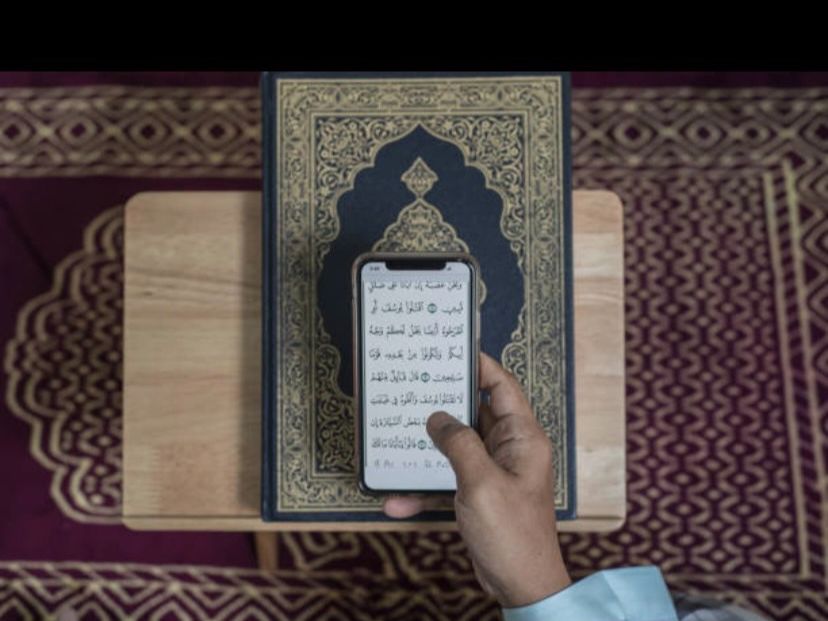 ونحن عصبة إن أبانا لفي ضلل
مبين ٨ اقتلوا يوسف أو
اطرحوه أرضا يخل لكم وجه
أبيكم وتكونوا من بعده قوما
صلحين ٩ قال قائل منهم
لا تقتلوا يوسف وألقوه في غيبت
بعض السيارة إن
قالوا يأبانا ما لك